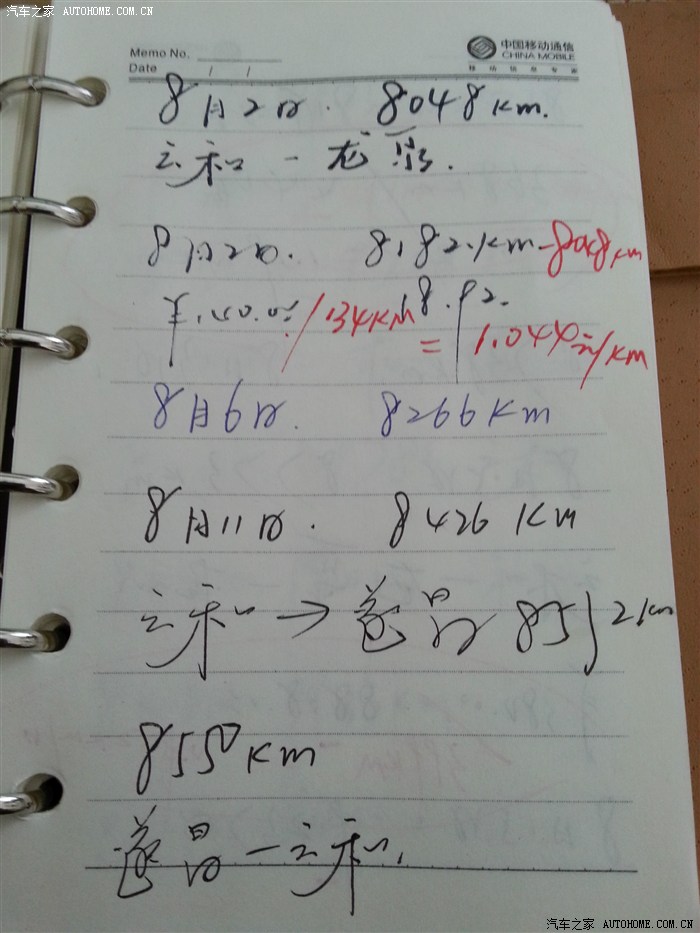 汽车之家 AUTOHOME.COM.CN
Memo No.
Date / /
中国移动通信
CHINA MOBILE
移动信息专家
8月2日. 8048km.
云和 - 龙泉.
8月2日. 8182.km-8048km
¥:140.0元/134KM 18.92.
= 1.044元/KM
8月6日. 8266Km
8月11日. 8426 Km
云和 → 遂昌 8552km
8550km
遂昌 - 云和.
汽车之家 AUTOHOME.COM.CN